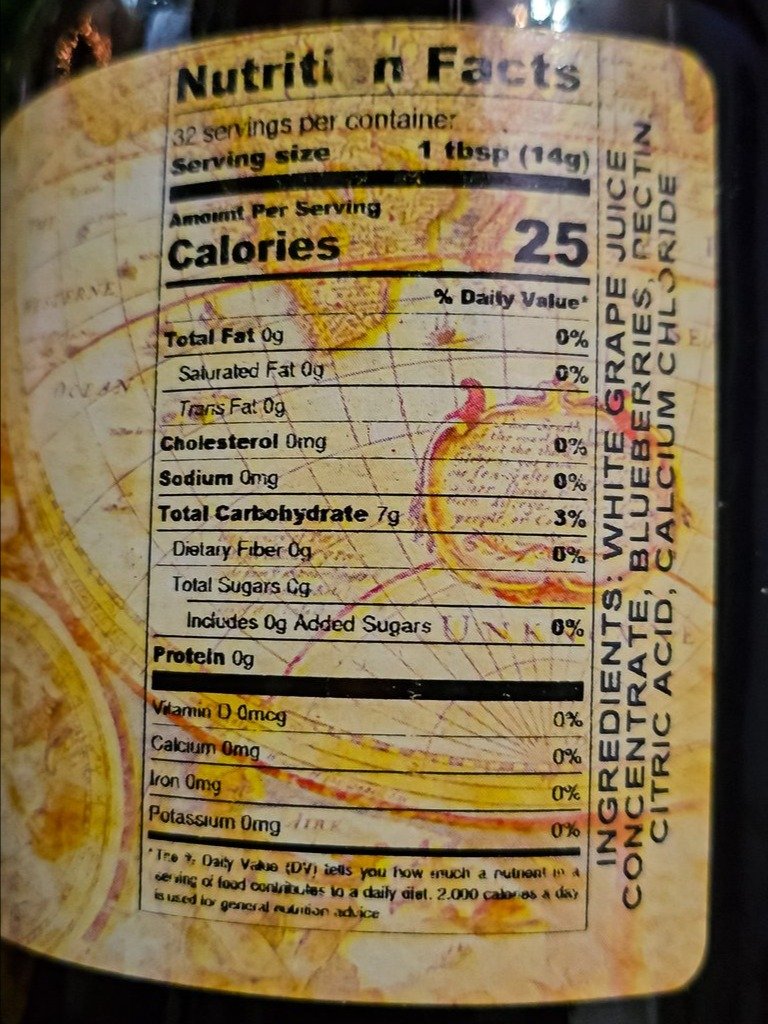 Nutriti n Facts
32 servings per container
Serving size 1 tbsp (14g)
Amount Per Serving
Calories 25
% Daily Value*
Total Fat 0g 0%
Saturated Fat 0g 0%
Trans Fat 0g
Cholesterol 0mg 0%
Sodium 0mg 0%
Total Carbohydrate 7g 3%
Dietary Fiber 0g 0%
Total Sugars 0g
Includes 0g Added Sugars 0%
Protein 0g
Vitamin D 0mcg 0%
Calcium 0mg 0%
Iron 0mg 0%
Potassium 0mg 0%
*The % Daily Value (DV) tells you how much a nutrient in a
serving of food contributes to a daily diet. 2,000 calories a day
is used for general nutrition advice
INGREDIENTS: WHITE GRAPE JUICE
CONCENTRATE, BLUEBERRIES, PECTIN,
CITRIC ACID, CALCIUM CHLORIDE
OCEAN
UNK